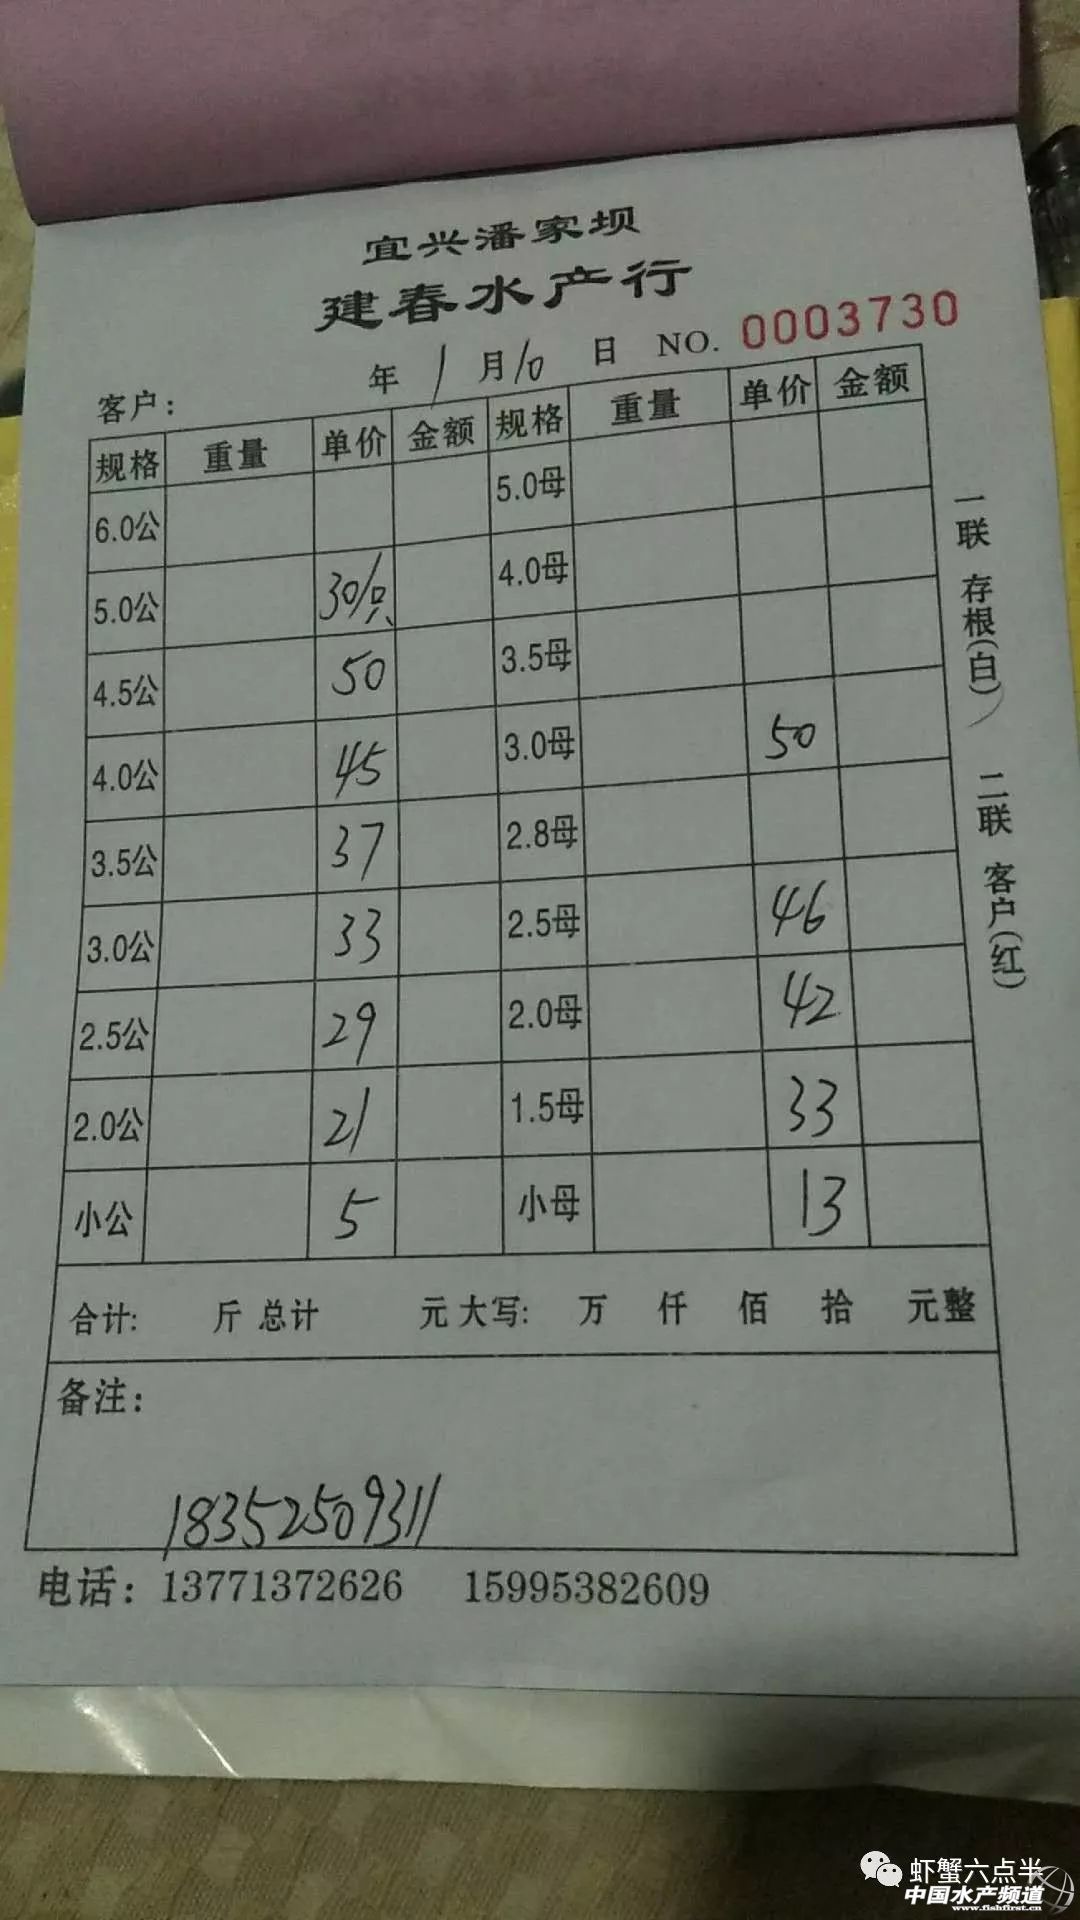 宜兴潘家坝
建春水产行
年 1 月 10 日 NO. 0003730
客户：
规格 重量 单价 金额 规格 重量 单价 金额
6.0公 5.0母
5.0公 30/只 4.0母
4.5公 50 3.5母
4.0公 45 3.0母 50
3.5公 37 2.8母
3.0公 33 2.5母 46
2.5公 29 2.0母 42
2.0公 21 1.5母 33
小公 5 小母 13
合计: 斤 总计 元 大写: 万 仟 佰 拾 元整
备注：
18352509311
电话：13771372626 15995382609
一联 存根(白) 二联 客户(红)
虾蟹六点半
中国水产频道
www.fishfirst.cn